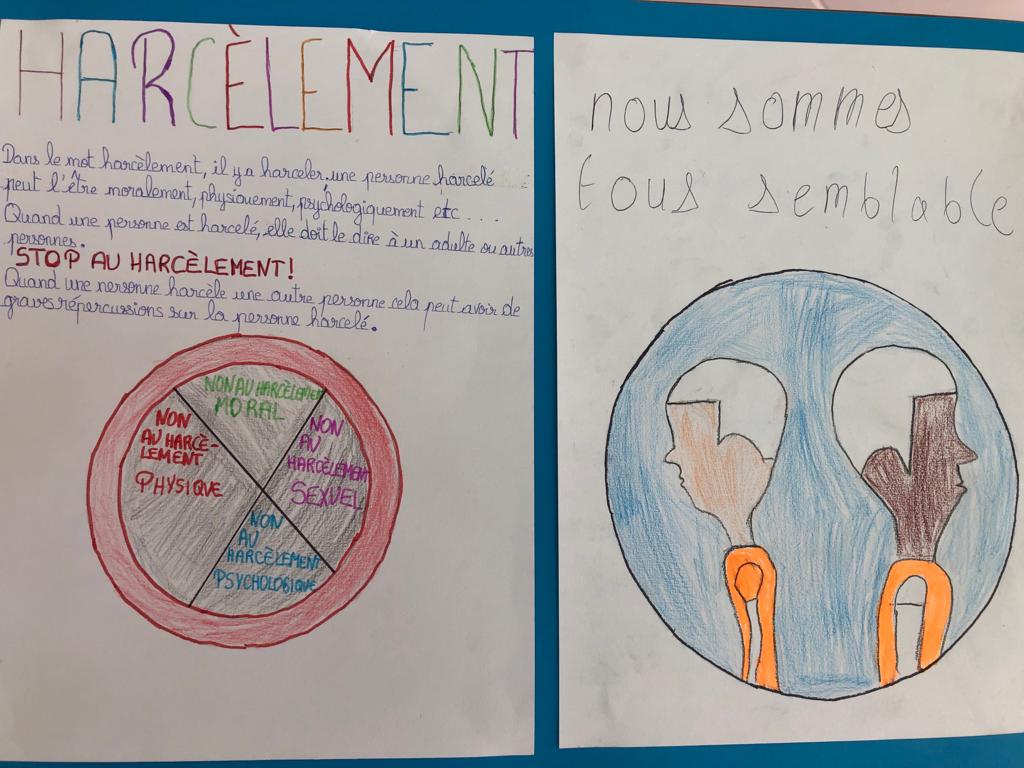 HARCÈLEMENT
Dans le mot harcèlement, il y a harceler. une personne harcelé
peut l'être moralement, physiquement, psychologiquement etc...
Quand une personne est harcelé, elle doit le dire à un adulte ou autres
personnes.
STOP AU HARCÈLEMENT!
Quand une personne harcèle une autre personne cela peut avoir de
graves répercussions sur la personne harcelé.
NON AU HARCÈLEMENT
MORAL
NON
AU HARCÈ-
LEMENT
PHYSIQUE
NON
AU
HARCÈLEMENT
SEXUEL
NON
AU
HARCÈLEMENT
PSYCHOLOGIQUE
nous sommes
tous semblable